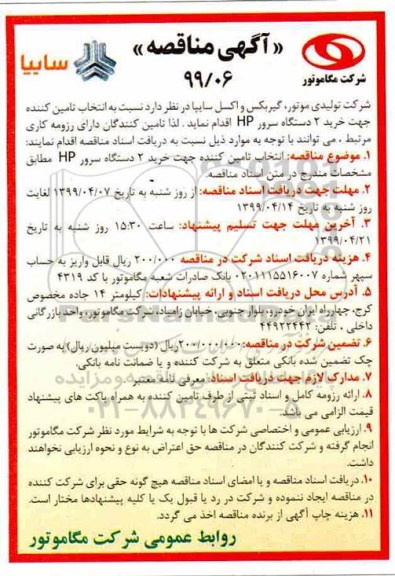 « آگهی مناقصه »
۹۹/۰۶
شرکت مگاموتور
سایپا
شرکت تولیدی موتور، گیربکس و اکسل سایپا در نظر دارد نسبت به انتخاب تامین کننده
جهت خرید ۲ دستگاه سرور HP اقدام نماید . لذا تامین کنندگان دارای رزومه کاری
مرتبط ، می توانند با توجه به موارد ذیل نسبت به دریافت اسناد مناقصه اقدام نمایند:
۱. موضوع مناقصه: انتخاب تامین کننده جهت خرید ۲ دستگاه سرور HP مطابق
مشخصات مندرج در متن اسناد مناقصه.
۲. مهلت جهت دریافت اسناد مناقصه: از روز شنبه به تاریخ ۱۳۹۹/۰۴/۰۷ لغایت
روز شنبه به تاریخ ۱۳۹۹/۰۴/۱۴
۳. آخرین مهلت جهت تسلیم پیشنهاد: ساعت ۱۵:۳۰ روز شنبه به تاریخ
۱۳۹۹/۰۴/۲۱
۴. هزینه دریافت اسناد شرکت در مناقصه ۲۰۰/۰۰۰ ریال قابل واریز به حساب
سپهر شماره ۰۲۰۱۱۱۵۵۱۶۰۰۷ بانک صادرات شعبه مگاموتور با کد ۴۳۱۹
۵. آدرس محل دریافت اسناد و ارائه پیشنهادات: کیلومتر ۱۴ جاده مخصوص
کرج، چهارراه ایران خودرو، بلوار جنوبی، خیابان زامیاد، شرکت مگاموتور، واحد بازرگانی
داخلی ، تلفن: ۴۴۹۲۲۴۴۲
۶. تضمین شرکت در مناقصه: ۲۰۰/۰۰۰/۰۰۰ ریال (دویست میلیون ریال) به صورت
چک تضمین شده بانکی متعلق به شرکت کننده و یا ضمانت نامه بانکی.
۷. مدارک لازم جهت دریافت اسناد: معرفی نامه معتبر
۸. ارائه رزومه کامل و اسناد ثبتی از طرف تامین کننده به همراه پاکت های پیشنهاد
قیمت الزامی می باشد.
۹. ارزیابی عمومی و اختصاصی شرکت ها با توجه به شرایط مورد نظر شرکت مگاموتور
انجام گرفته و شرکت کنندگان در مناقصه حق اعتراض به نوع و نحوه ارزیابی نخواهند
داشت.
۱۰. دریافت اسناد مناقصه و یا امضای اسناد مناقصه هیچ گونه حقی برای شرکت کننده
در مناقصه ایجاد ننموده و شرکت در رد یا قبول یک یا کلیه پیشنهادها مختار است.
۱۱. هزینه چاپ آگهی از برنده مناقصه اخذ می گردد.
روابط عمومی شرکت مگاموتور
۰۲۱-۸۸۳۴۹۶۷۰-۵